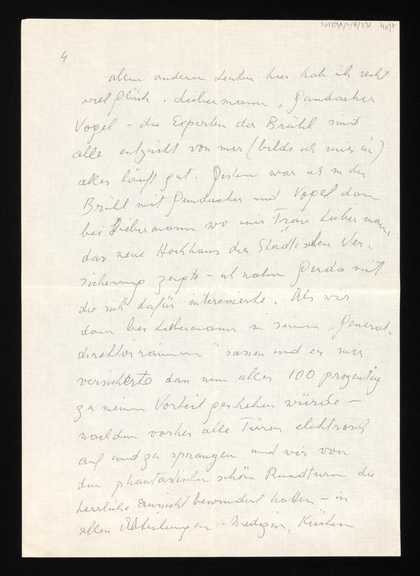 4
allen andern Leuten hier hab ich recht
viel Glück. Liebermann, Gundacker
Vogel – die Experten der Brühl sind
alle entzückt von mir (bilde ich mir ein)
alles läuft gut. Gestern war ich in der
Brühl mit Gundacker und Vogel dann
bei Liebermann wo mir Frau Liebermann
das neue Hochhaus der Städtischen Ver-
sicherung zeigte – ich nahm Gerda mit
die sich dafür interessierte. Als wir
dann bei Liebermann in seinen „General-
direktorräumen" sassen und er mir
versicherte dass nun alles 100 prozentig
zu meinem Vorteil geschehen würde –
nachdem vorher alle Türen elektrisch
auf und zu sprangen und wir von
dem phantastisch schönen Rundturm die
herrliche Aussicht bewundert hatten – in
allen Abteilungen – Medizin,